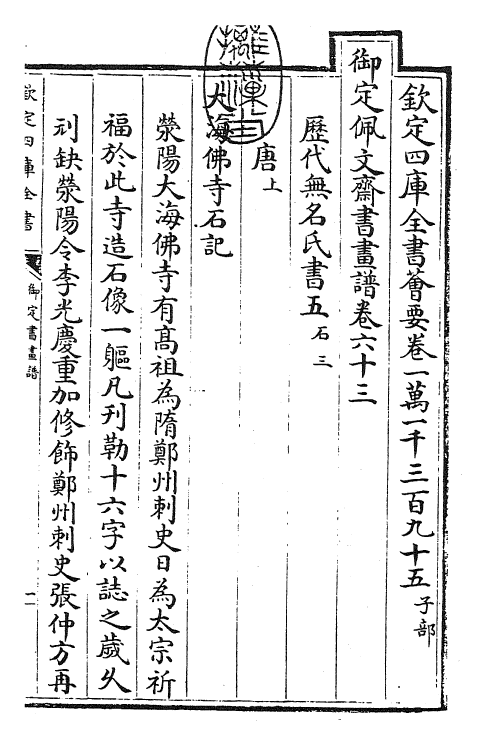 欽定四庫全書薈要卷一萬一千三百九十五子部
御定佩文齋書畫譜卷六十三
歷代無名氏書五石三
唐上
大海佛寺石記
滎陽大海佛寺有髙祖為隋鄭州刺史日為太宗祈
福於此寺造石像一軀凡刊勒十六字以誌之歲乆
刓缺滎陽令李光慶重加修飾鄭州刺史張仲方再
欽定四庫全書
御定書畫譜
一